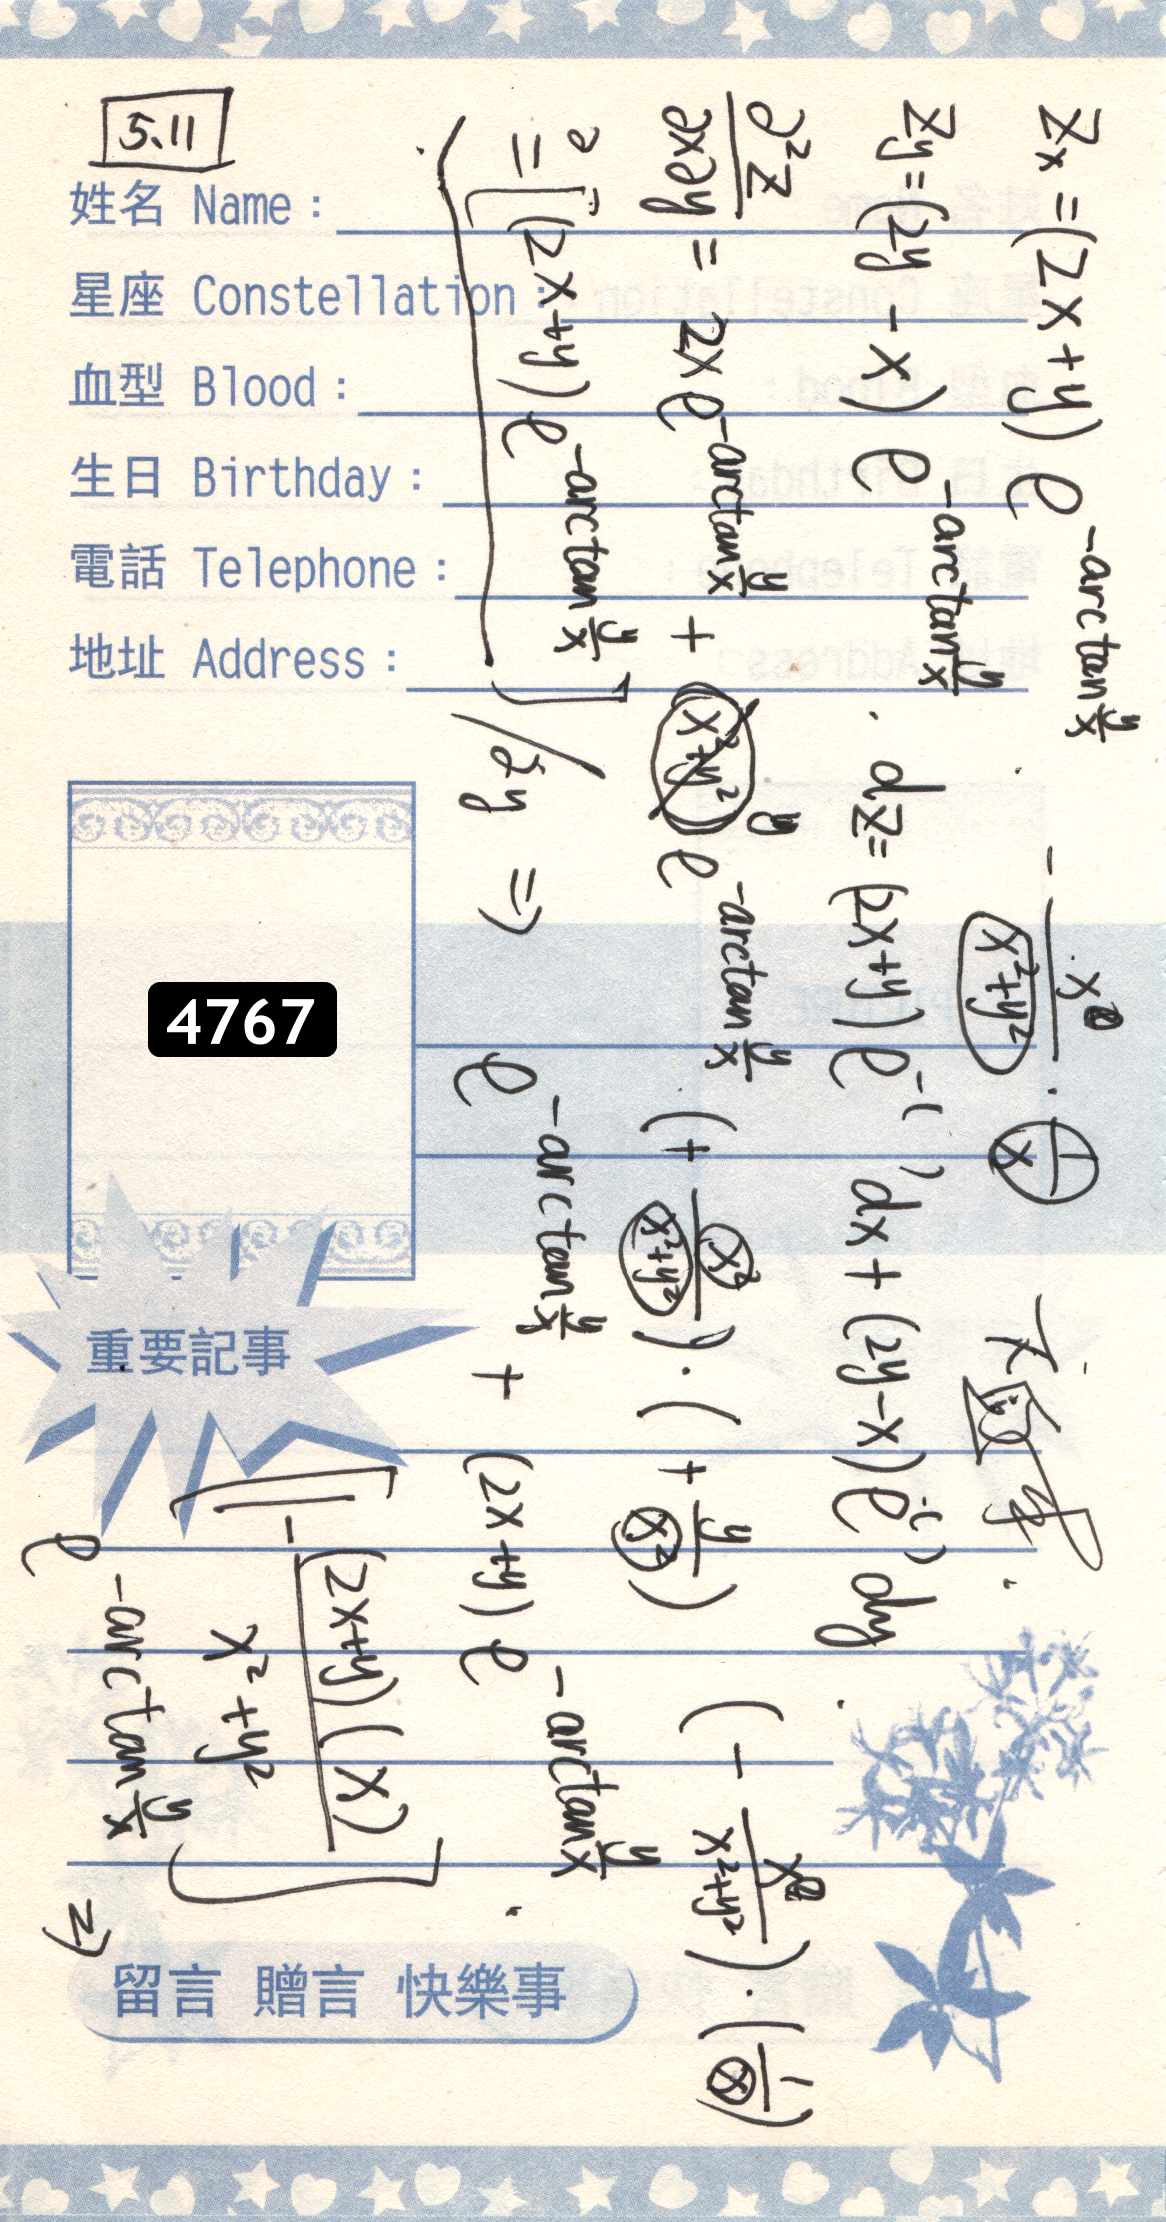 5.11
姓名 Name：
星座 Constellation：
血型 Blood：
生日 Birthday：
電話 Telephone：
地址 Address：
4767
重要記事
留言 贈言 快樂事
Zx = (2x+y) e^{-arctan y/x}
- x/(x²+y²) · 1/x
Zy = (2y - x) e^{-arctan y/x} . dz = (2x+y) e^{-( )} dx + (2y-x) e^{-( )} dy
∂²z/∂x∂y = 2x e^{-arctan y/x} + y e^{-arctan y/x} · (+ x²/(x²+y²)) · (+ y/x²) (- x/(x²+y²)) · (1/x)
∂ = [(2x+y) e^{-arctan y/x}] / ∂y ⇒ e^{-arctan y/x} + (2x+y) e^{-arctan y/x} .
[1 - (2x+y)(x)/(x²+y²)] e^{-arctan y/x} ⇒